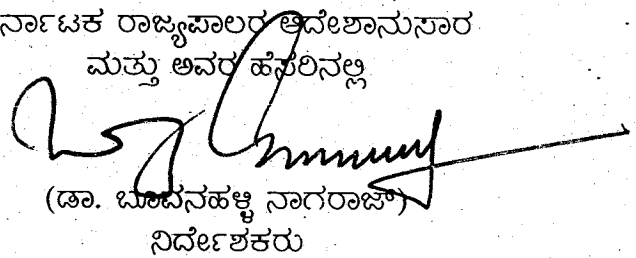 ರ್ನಾಟಕ ರಾಜ್ಯಪಾಲರ ಆದೇಶಾನುಸಾರ
ಮತ್ತು ಅವರ ಹೆಸರಿನಲ್ಲಿ
(ಡಾ. ಬೂವನಹಳ್ಳಿ ನಾಗರಾಜ್)
ನಿರ್ದೇಶಕರು